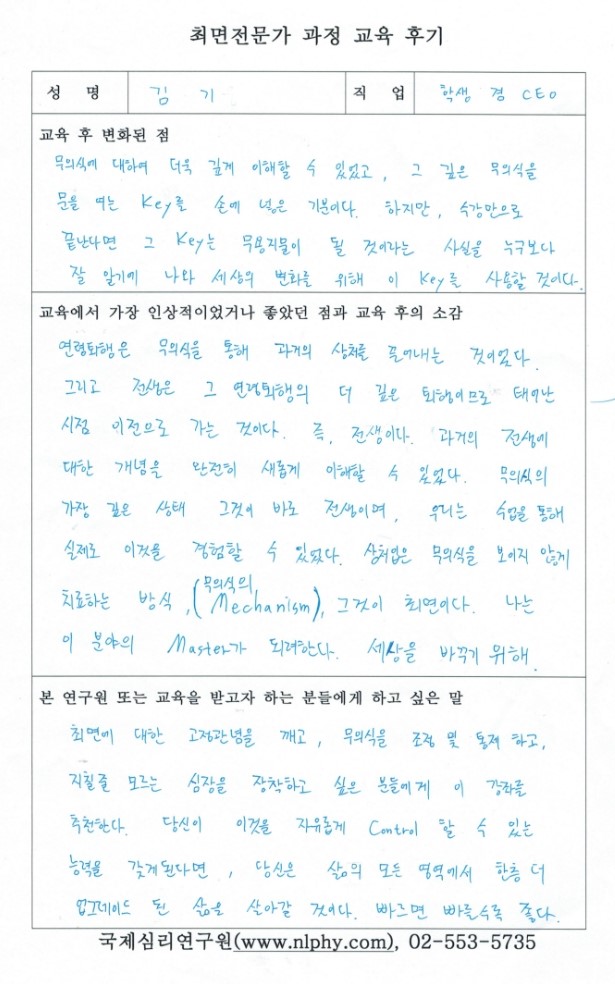 최면전문가 과정 교육 후기
성 명 김 기 직 업 학생 겸 CEO
교육 후 변화된 점
무의식에 대하여 더욱 깊게 이해할 수 있었고, 그 깊은 무의식을
문을 여는 Key를 손에 넣은 기분이다. 하지만, 수강만으로
끝난다면 그 Key는 무용지물이 될 것이라는 사실을 누구보다
잘 알기에 나와 세상의 변화를 위해 이 Key를 사용할 것이다.
교육에서 가장 인상적이었거나 좋았던 점과 교육 후의 소감
연령퇴행은 무의식을 통해 과거의 상처를 끌어내는 것이었다.
그리고 전생은 그 연령퇴행의 더 깊은 퇴행이므로 태어난
시점 이전으로 가는 것이다. 즉, 전생이다. 과거의 전생에
대한 개념을 완전히 새롭게 이해할 수 있었다. 무의식의
가장 깊은 상태 그것이 바로 전생이며, 우리는 수업을 통해
실제로 이것을 경험할 수 있었다. 상처입은 무의식을 보이지 않게
치료하는 방식, (무의식의 Mechanism), 그것이 최면이다. 나는
이 분야의 Master가 되려한다. 세상을 바꾸기 위해.
본 연구원 또는 교육을 받고자 하는 분들에게 하고 싶은 말
최면에 대한 고정관념을 깨고, 무의식을 조정 및 통제 하고,
지칠줄 모르는 심장을 장착하고 싶은 분들에게 이 강좌를
추천한다. 당신이 이것을 자유롭게 Control 할 수 있는
능력을 갖게된다면, 당신은 삶의 모든 영역에서 한층 더
업그레이드 된 삶을 살아갈 것이다. 빠르면 빠를수록 좋다.
국제심리연구원(www.nlphy.com), 02-553-5735